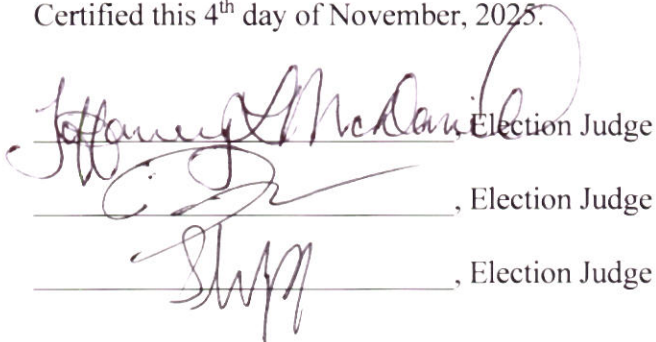 Certified this 4th day of November, 2025.
McDaniel, Election Judge
, Election Judge
, Election Judge